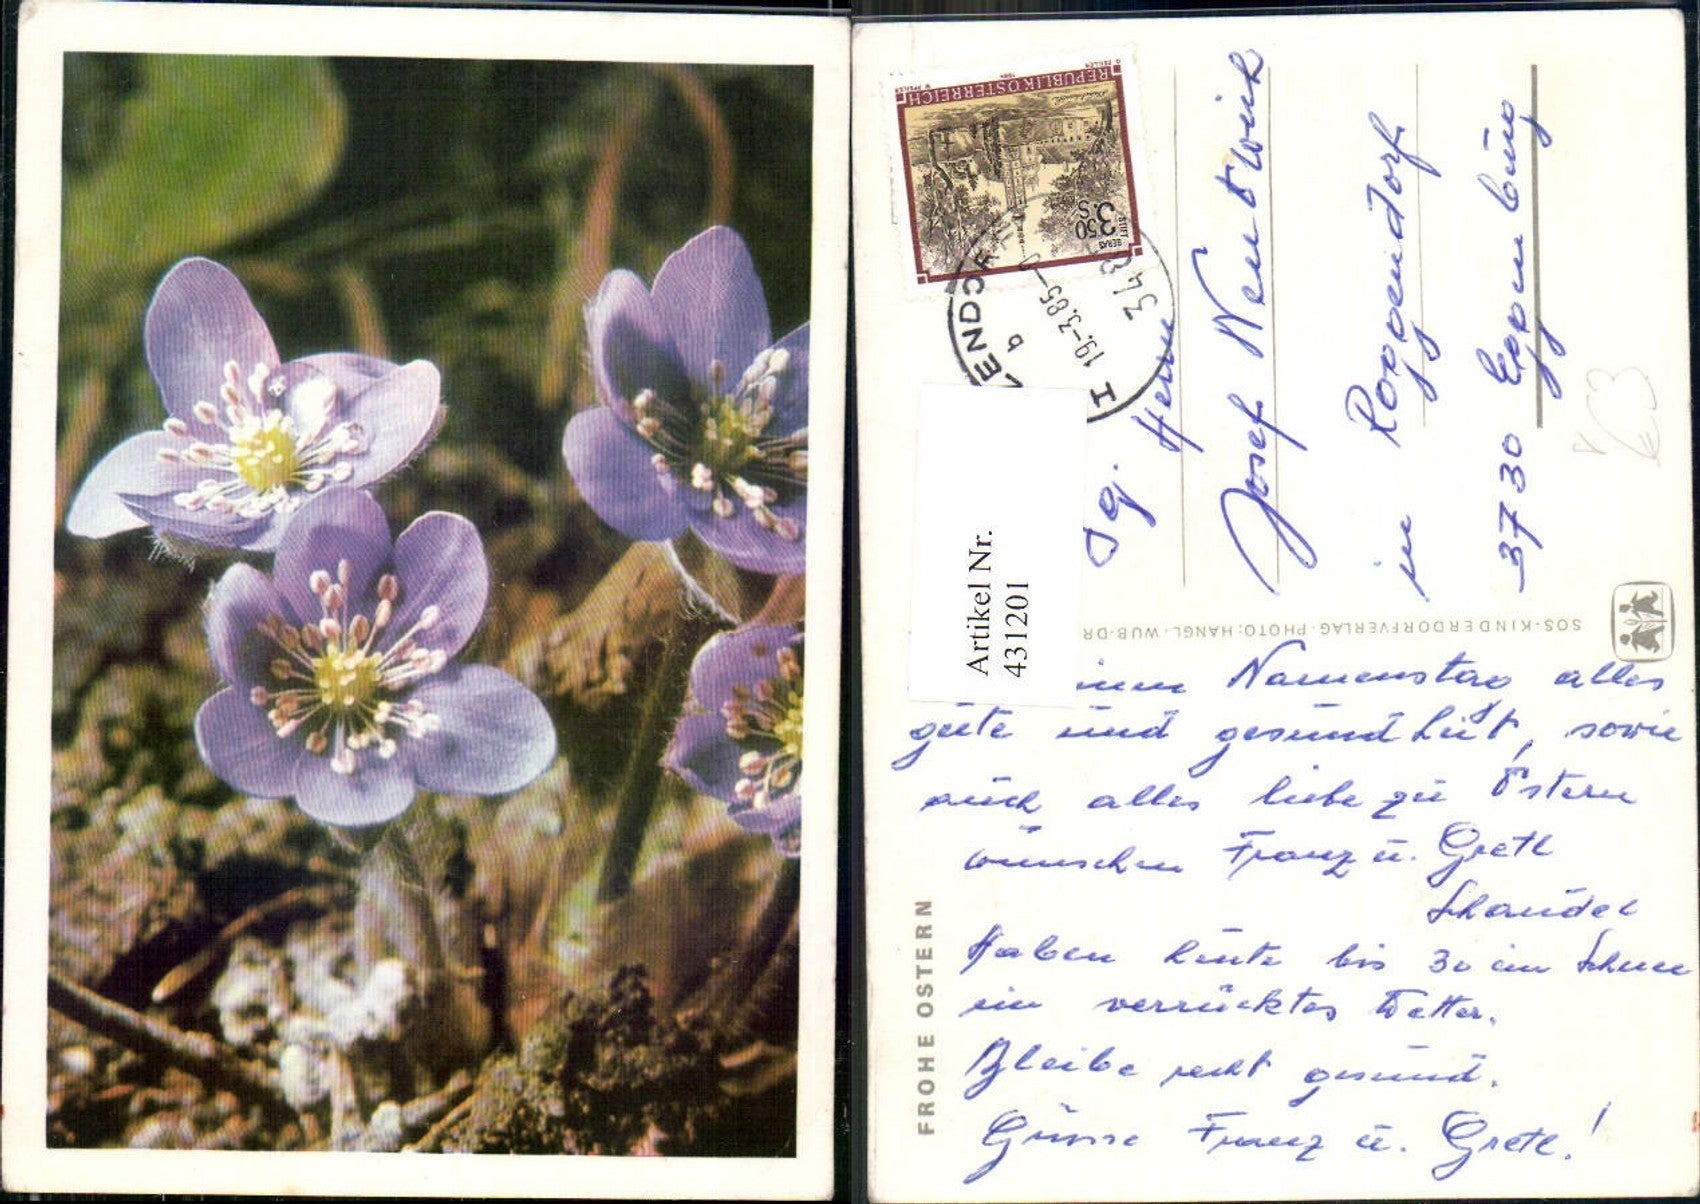 REPUBLIK ÖSTERREICH
3.50
S
STIFT
GERAS
19.-3.85
Artikel Nr.
4312201
Herrn
Josef
in Roggendorf
3730 Eggenburg
SOS-KINDERDORFVERLAG · PHOTO: HANGL · WUB-DR
FROHE OSTERN
Namenstag alles
gute und gesundheit, sowie
auch alles liebe zu Ostern
wünschen Franz u. Gretl
Haben heute bis 30 cm Schnee
ein verrücktes Wetter.
Bleibe recht gesund.
Grüsse Franz u. Gretl!